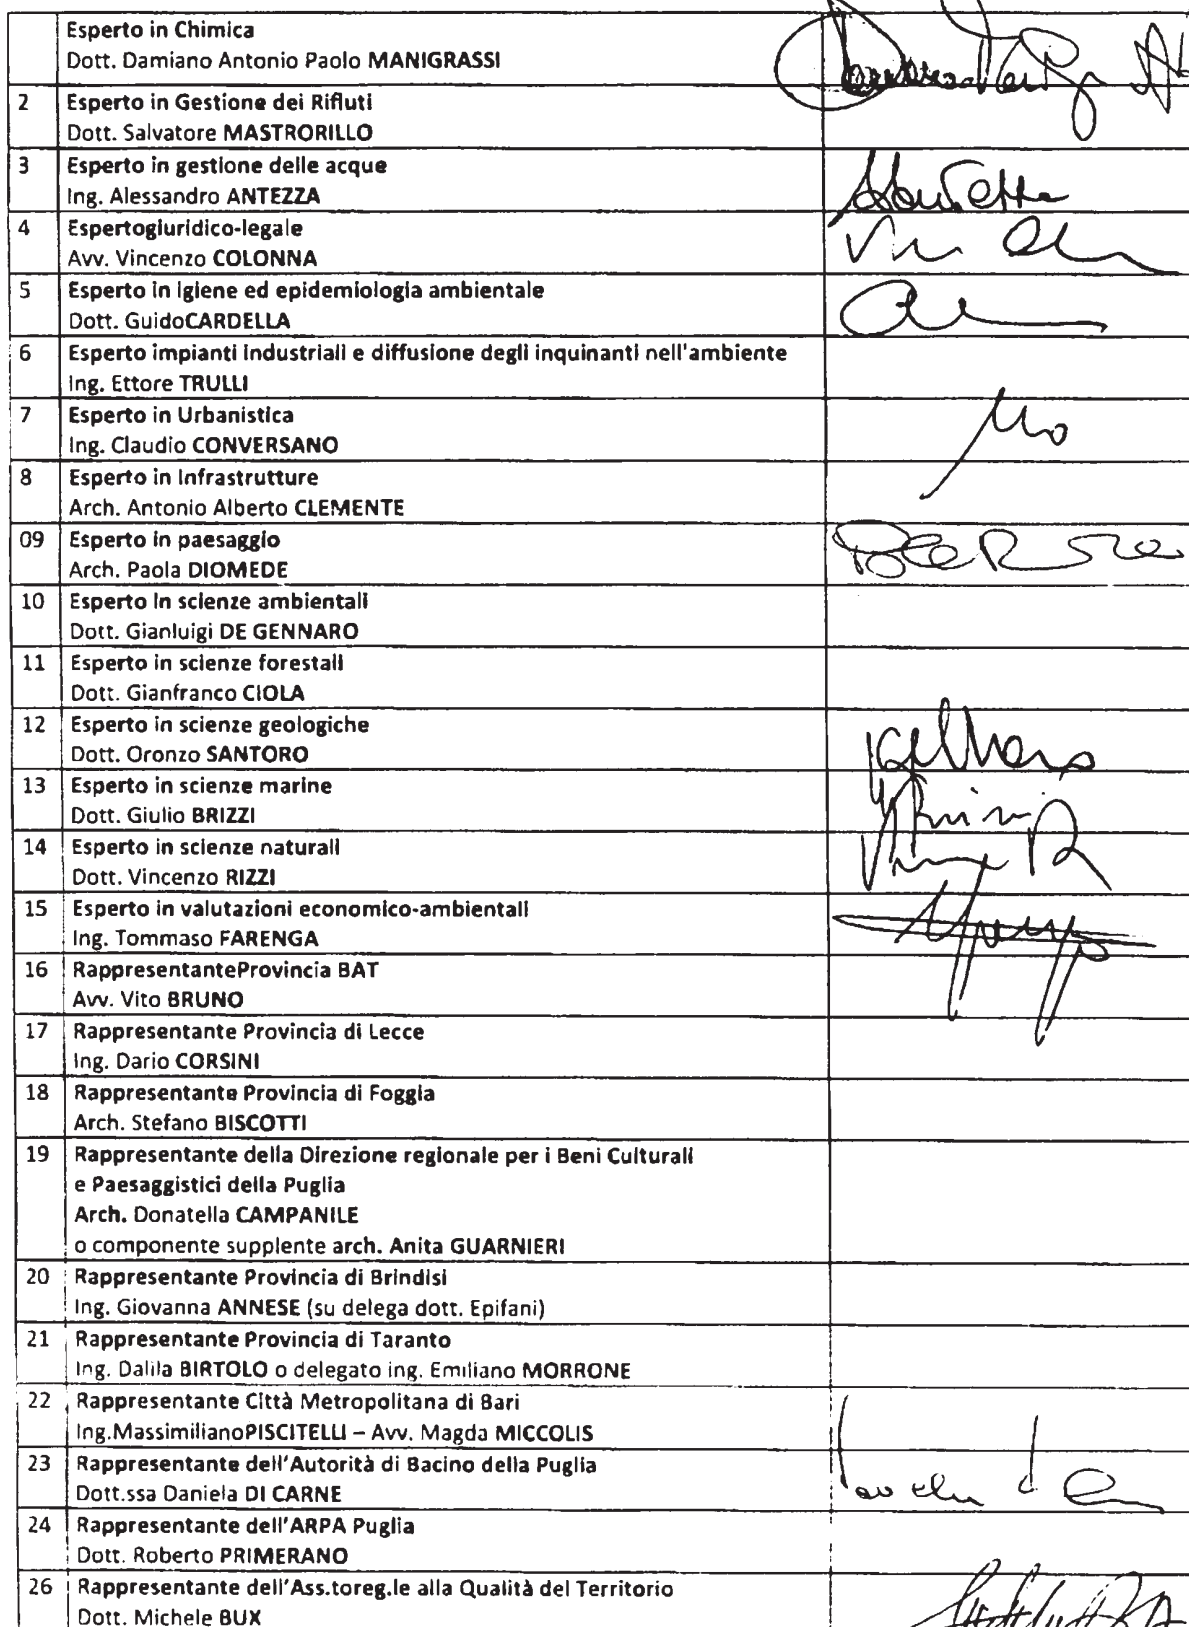 Esperto in Chimica
Dott. Damiano Antonio Paolo MANIGRASSI
2 Esperto in Gestione dei Rifiuti
Dott. Salvatore MASTRORILLO
3 Esperto in gestione delle acque
Ing. Alessandro ANTEZZA
4 Espertogiuridico-legale
Avv. Vincenzo COLONNA
5 Esperto in igiene ed epidemiologia ambientale
Dott. GuidoCARDELLA
6 Esperto impianti industriali e diffusione degli inquinanti nell'ambiente
Ing. Ettore TRULLI
7 Esperto in Urbanistica
Ing. Claudio CONVERSANO
8 Esperto in Infrastrutture
Arch. Antonio Alberto CLEMENTE
09 Esperto in paesaggio
Arch. Paola DIOMEDE
10 Esperto in scienze ambientali
Dott. Gianluigi DE GENNARO
11 Esperto in scienze forestali
Dott. Gianfranco CIOLA
12 Esperto in scienze geologiche
Dott. Oronzo SANTORO
13 Esperto in scienze marine
Dott. Giulio BRIZZI
14 Esperto in scienze naturali
Dott. Vincenzo RIZZI
15 Esperto in valutazioni economico-ambientali
Ing. Tommaso FARENGA
16 RappresentanteProvincia BAT
Avv. Vito BRUNO
17 Rappresentante Provincia di Lecce
Ing. Dario CORSINI
18 Rappresentante Provincia di Foggia
Arch. Stefano BISCOTTI
19 Rappresentante della Direzione regionale per i Beni Culturali
e Paesaggistici della Puglia
Arch. Donatella CAMPANILE
o componente supplente arch. Anita GUARNIERI
20 Rappresentante Provincia di Brindisi
Ing. Giovanna ANNESE (su delega dott. Epifani)
21 Rappresentante Provincia di Taranto
Ing. Dalila BIRTOLO o delegato ing. Emiliano MORRONE
22 Rappresentante Città Metropolitana di Bari
Ing.MassimilianoPISCITELLI – Avv. Magda MICCOLIS
23 Rappresentante dell'Autorità di Bacino della Puglia
Dott.ssa Daniela DI CARNE
24 Rappresentante dell'ARPA Puglia
Dott. Roberto PRIMERANO
26 Rappresentante dell'Ass.toreg.le alla Qualità del Territorio
Dott. Michele BUX